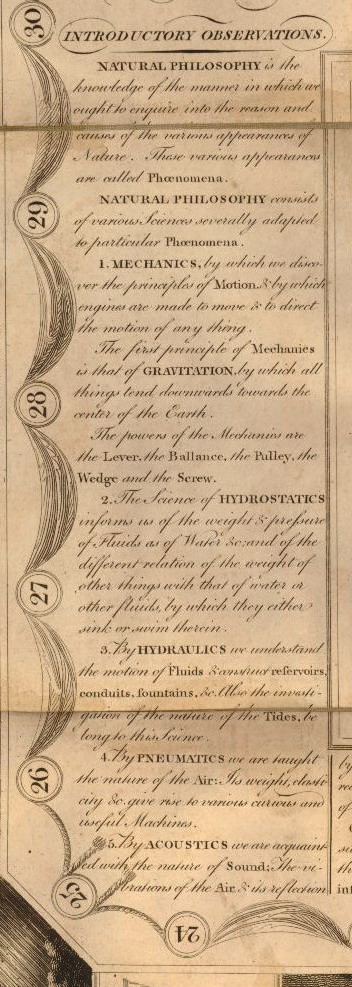 30
INTRODUCTORY OBSERVATIONS.
NATURAL PHILOSOPHY is the
knowledge of the manner in which we
ought to enquire into the reason and
causes of the various appearances of
Nature. These various appearances
are called Phœnomena.
29
NATURAL PHILOSOPHY consists
of various Sciences severally adapted
to particular Phœnomena.
1. MECHANICS, by which we disco-
ver the principles of Motion & by which
engines are made to move & to direct
the motion of any thing.
The first principle of Mechanies
is that of GRAVITATION, by which all
things tend downwards towards the
center of the Earth.
28
The powers of the Mechanics are
the Lever, the Ballance, the Pulley, the
Wedge and the Screw.
2. The Science of HYDROSTATICS
informs us of the weight & preſsure
of Fluids as of Water &c: and of the
different relation of the weight of
other things with that of water or
27
other fluids, by which they either
sink or swim therein.
3. By HYDRAULICS we understand
the motion of Fluids & construct reservoirs,
conduits, fountains, &c. Also the investi-
gation of the nature of the Tides, be
long to this Science.
26
4. By PNEUMATICS we are taught
the nature of the Air: Its weight, elasti-
city &c. give rise to various curious and
useful Machines.
5. By ACOUSTICS we are acquaint
ed with the nature of Sound; The vi-
brations of the Air & its reflection
25
24